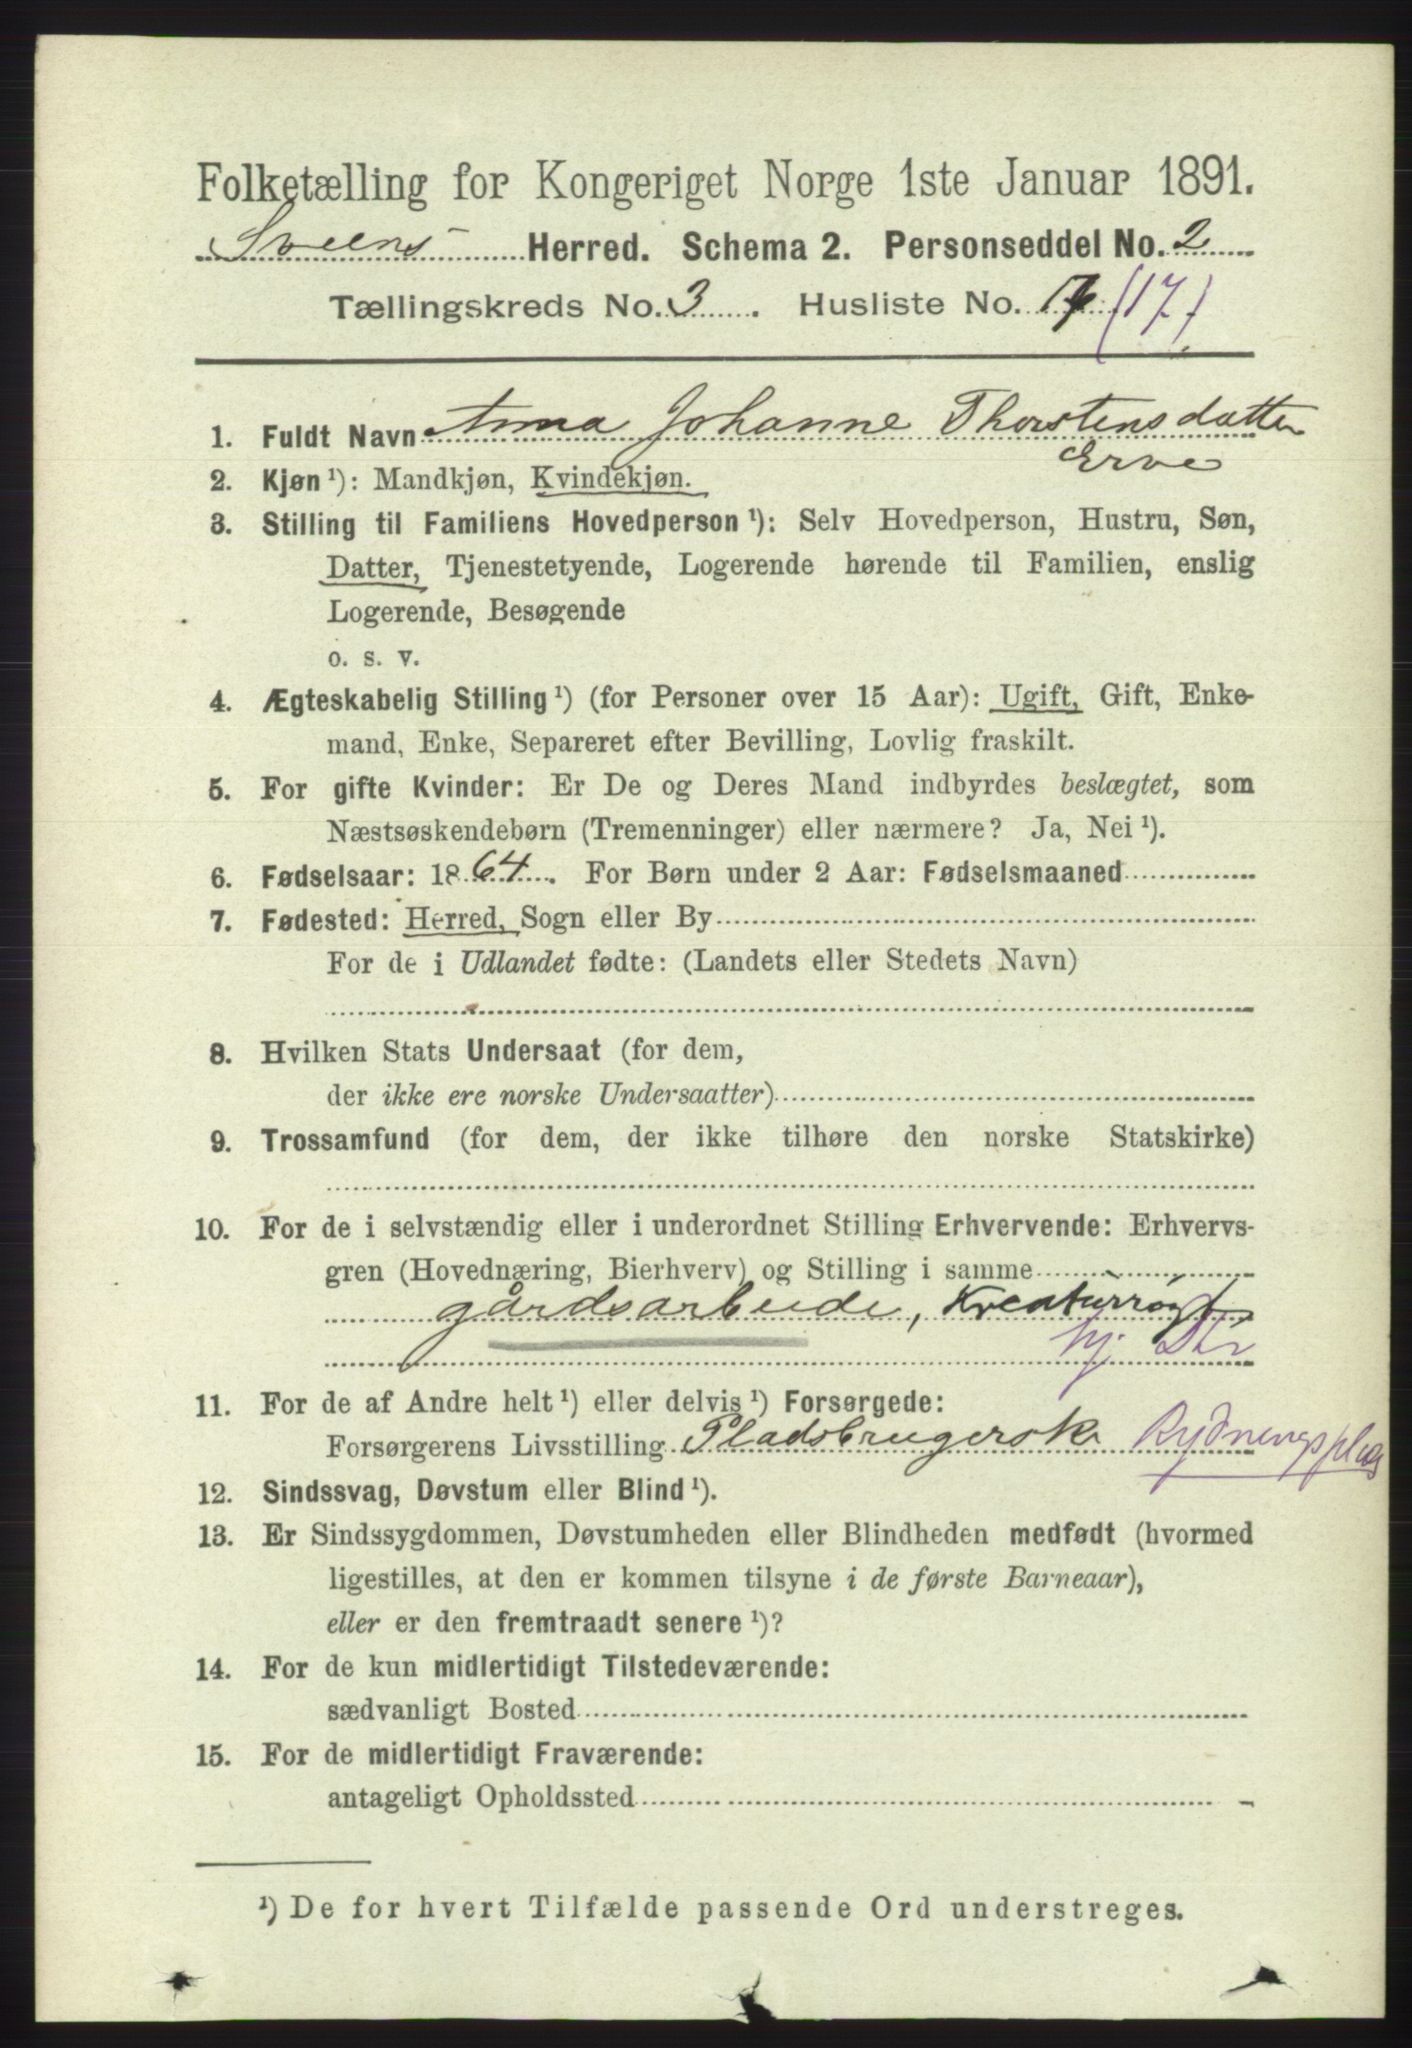 Folketælling for Kongeriget Norge 1ste Januar 1891.
Sveens Herred. Schema 2. Personseddel No. 2
Tællingskreds No. 3. Husliste No. (17)
1. Fuldt Navn Anna Johanne Thorstensdatter
Erve
2. Kjøn ¹): Mandkjøn, Kvindekjøn.
3. Stilling til Familiens Hovedperson ¹): Selv Hovedperson, Hustru, Søn,
Datter, Tjenestetyende, Logerende hørende til Familien, enslig
Logerende, Besøgende
o. s. v.
4. Ægteskabelig Stilling ¹) (for Personer over 15 Aar): Ugift, Gift, Enke-
mand, Enke, Separeret efter Bevilling, Lovlig fraskilt.
5. For gifte Kvinder: Er De og Deres Mand indbyrdes beslægtet, som
Næstsøskendebørn (Tremenninger) eller nærmere? Ja, Nei ¹).
6. Fødselsaar: 1864. For Børn under 2 Aar: Fødselsmaaned
7. Fødested: Herred, Sogn eller By
For de i Udlandet fødte: (Landets eller Stedets Navn)
8. Hvilken Stats Undersaat (for dem,
der ikke ere norske Undersaatter)
9. Trossamfund (for dem, der ikke tilhøre den norske Statskirke)
10. For de i selvstændig eller i underordnet Stilling Erhvervende: Erhvervs-
gren (Hovednæring, Bierhverv) og Stilling i samme
gårdsarbeide, Kreaturrøgt
hj. Dtr
11. For de af Andre helt ¹) eller delvis ¹) Forsørgede:
Forsørgerens Livsstilling Pladsbrugerske Rydningsplads
12. Sindssvag, Døvstum eller Blind ¹).
13. Er Sindssygdommen, Døvstumheden eller Blindheden medfødt (hvormed
ligestilles, at den er kommen tilsyne i de første Barneaar),
eller er den fremtraadt senere ¹)?
14. For de kun midlertidigt Tilstedeværende:
sædvanligt Bosted
15. For de midlertidigt Fraværende:
antageligt Opholdssted
¹) De for hvert Tilfælde passende Ord understreges.